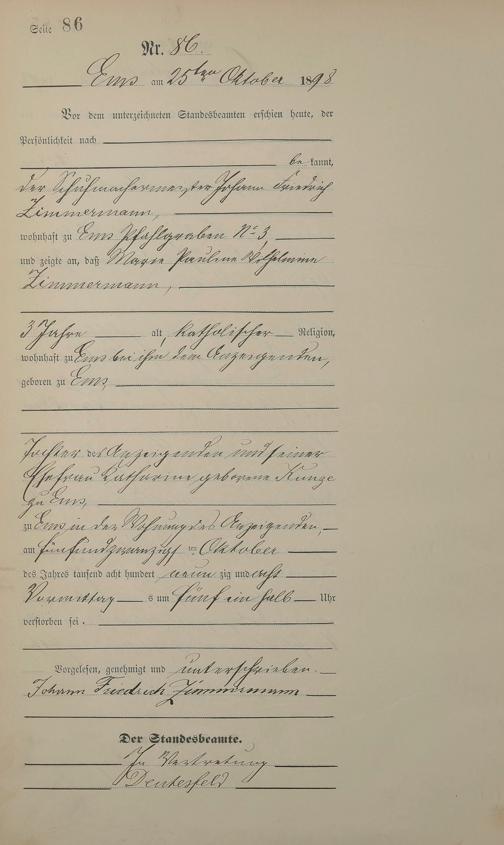 Seite 86
Nr. 86.
Ems am 25ten Oktober 1898
Vor dem unterzeichneten Standesbeamten erschien heute, der
Persönlichkeit nach
be kannt,
der Schuhmachermeister Johann Friedrich
Zimmermann,
wohnhaft zu Ems Pfahlgraben No 3,
und zeigte an, daß Marie Pauline Wilhelmine
Zimmermann,
3 Jahre alt, katholischer Religion,
wohnhaft zu Ems bei ihm dem Anzeigenden,
geboren zu Ems,
Tochter des Anzeigenden und seiner
Ehefrau Katharine geborene Kunze
zu Ems,
zu Ems in der Wohnung des Anzeigenden,
am fünfundzwanzigsten Oktober
des Jahres tausend acht hundert neun zig und acht
Vormittags um fünf ein halb Uhr
verstorben sei.
Vorgelesen, genehmigt und unterschrieben.
Johann Friedrich Zimmermann
Der Standesbeamte.
In Vertretung